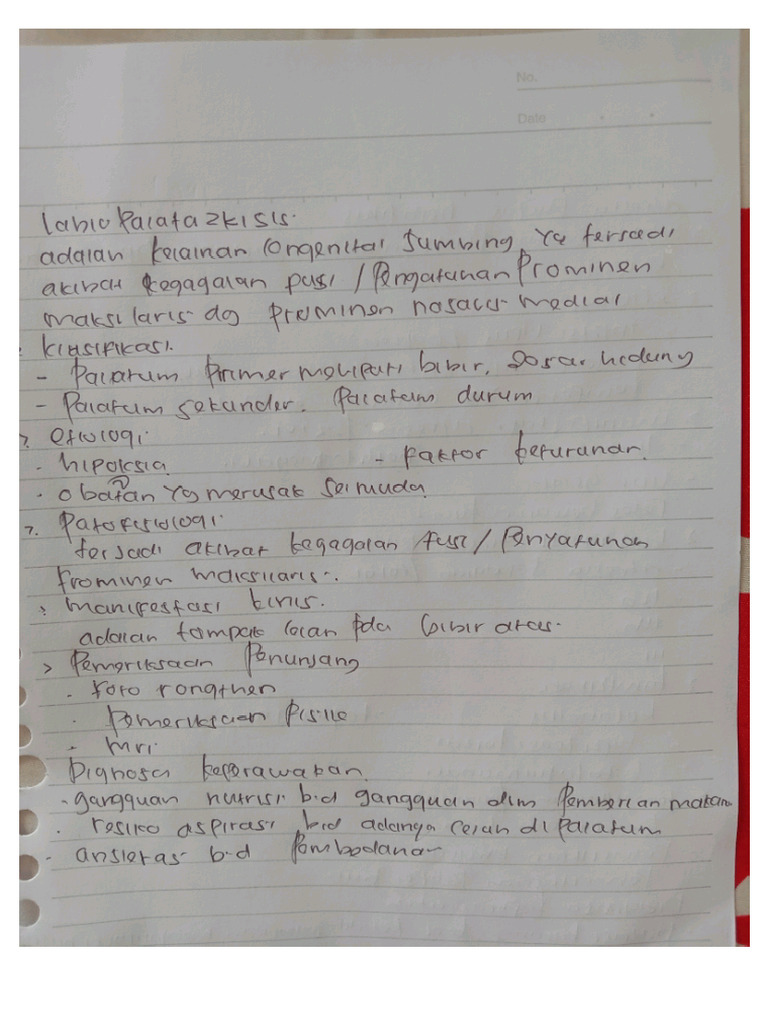 No.
Date
Labio Palatazkisis.
adalah kelainan Congenital Sumbing Yg terjadi
akibat kegagalan pusi / Pengatunan Prominen
maksilaris dg Prominen nasalis medial
Klasifikasi.
- Palatum Primer meliputi bibir, Dasar hidung
- Palatum sekunder. Palatum durum
? etiologi.
- hipoksia. - Faktor keturunan.
- obatan Yg merusak Sel muda.
? Patofisiologi.
terjadi akibat kegagalan fusi / Penyatunan
Frominen maksilaris.
> manifestasi klinis.
adalah tampak celah Pda bibir atas.
> Pemeriksaan Penunjang
- Foto rongthen
- Pemeriksaan Fisike
- mri.
Dignosa keperawaban.
- gangguan nutrisi b.d gangguan dlm Pemberian makan
- resiko aspirasi b.d adanga celah di Palatum
- ansietas b.d Pembedahan